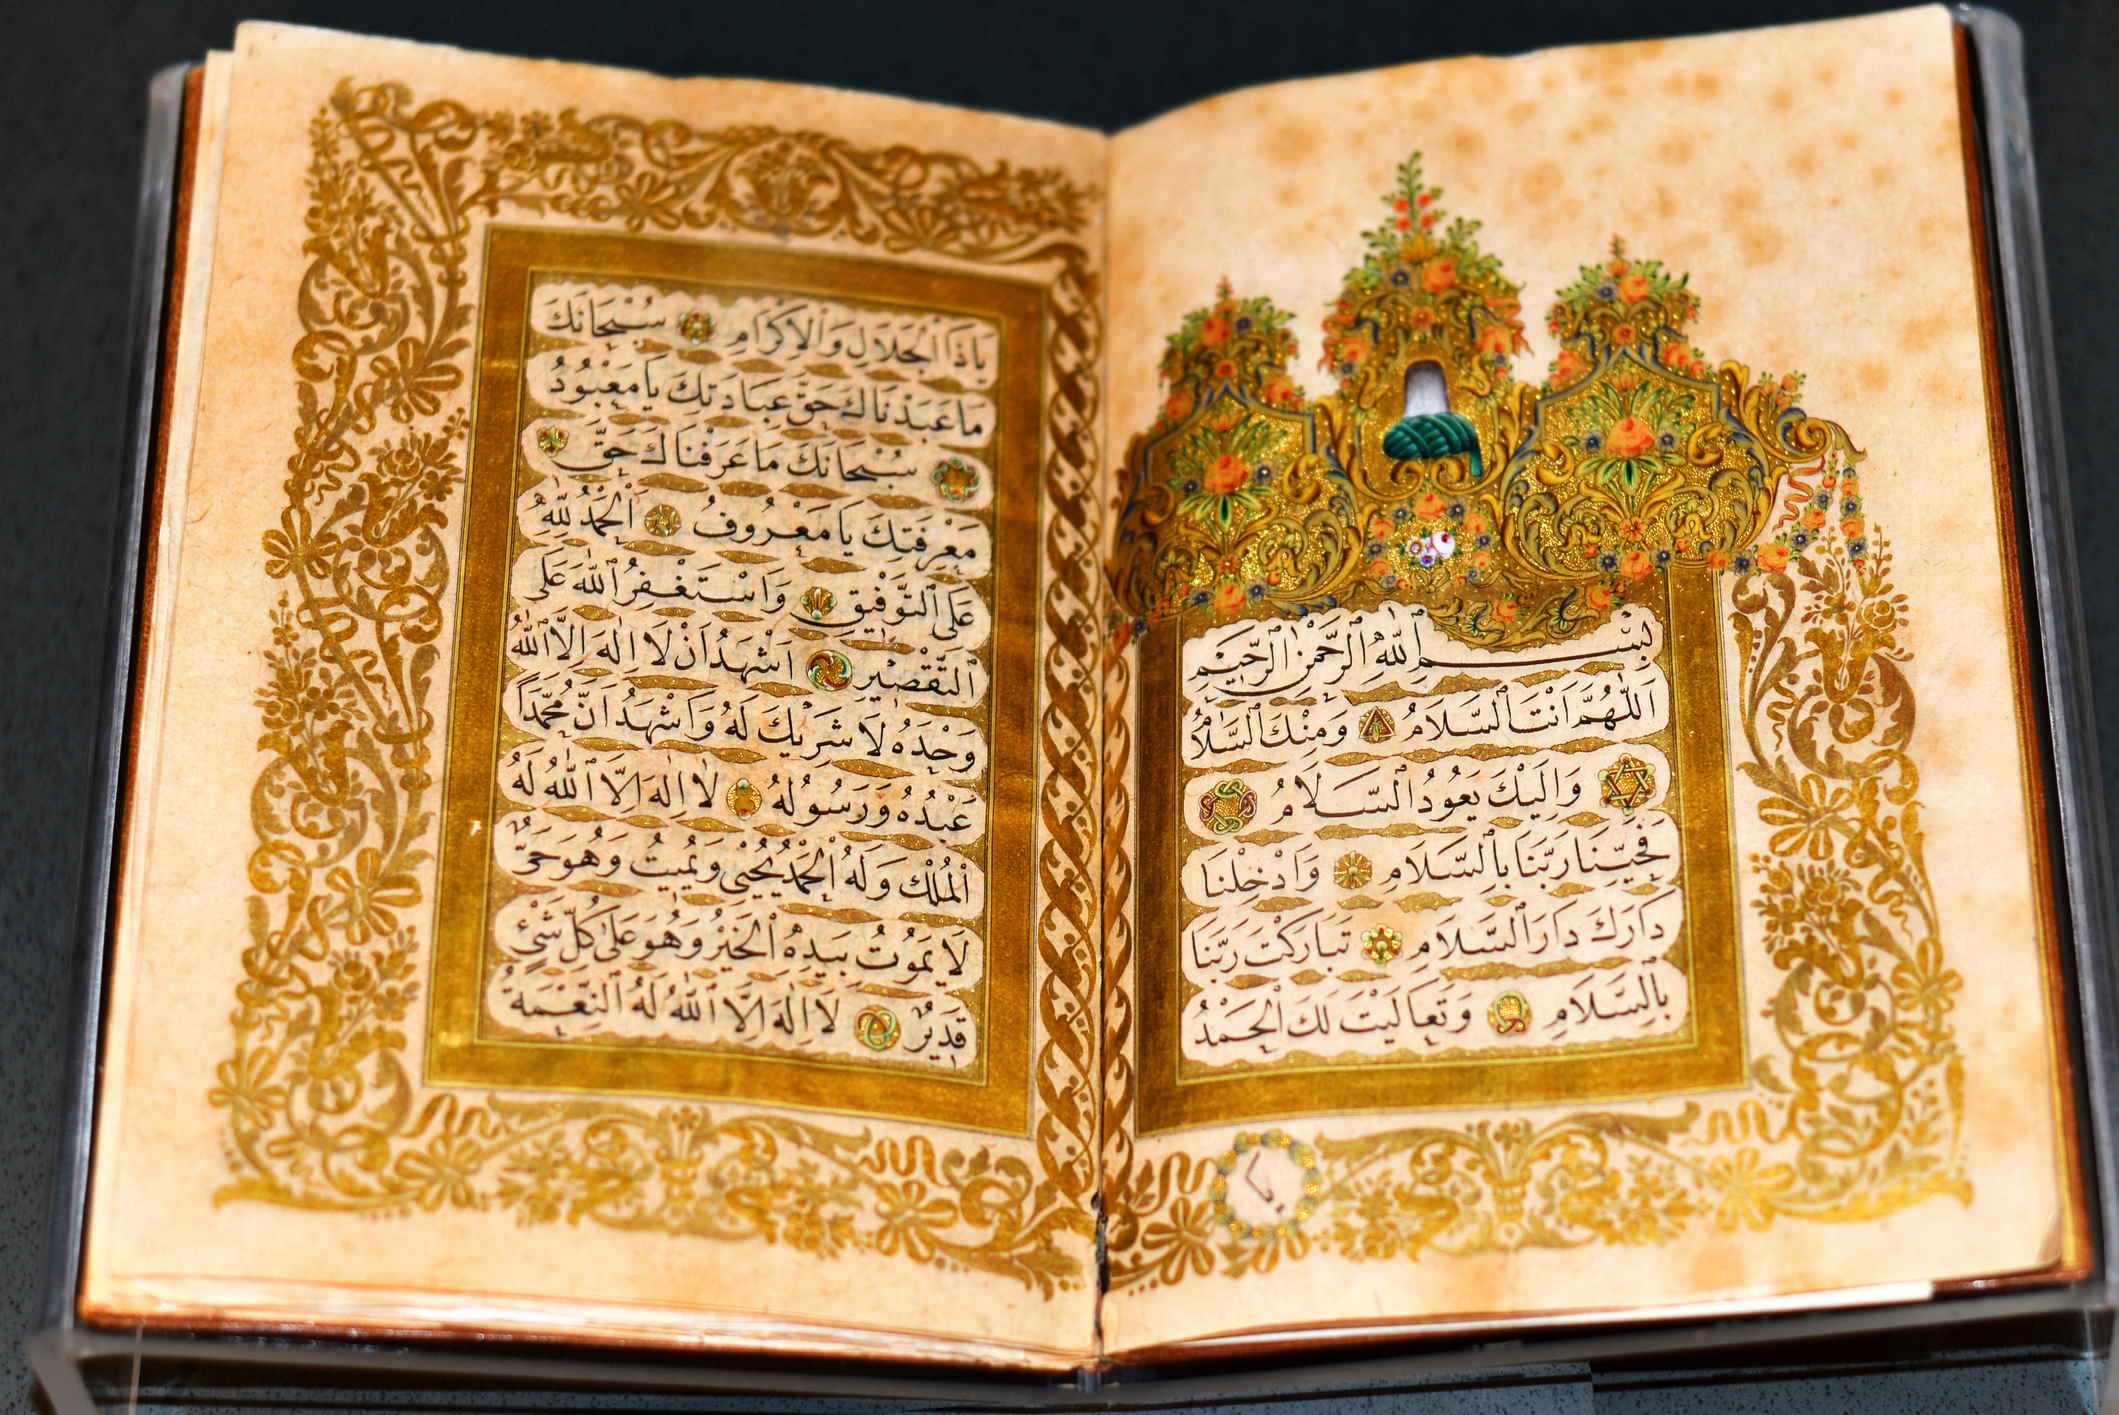 بِسْمِ اللّٰهِ الرَّحْمٰنِ الرَّحِيْمِ
اَللّٰهُمَّ اَنْتَ السَّلَامُ وَمِنْكَ السَّلَامُ
وَاِلَيْكَ يَعُودُ السَّلَامُ
فَحَيِّنَا رَبَّنَا بِالسَّلَامِ وَاَدْخِلْنَا
دَارَكَ دَارَ السَّلَامِ تَبَارَكْتَ رَبَّنَا
بِالسَّلَامِ وَتَعَالَيْتَ لَكَ الْحَمْدُ
يَا
يَاذَا الْجَلَالِ وَالْاِكْرَامِ سُبْحَانَكَ
مَا عَبَدْنَاكَ حَقَّ عِبَادَتِكَ يَا مَعْبُودُ
سُبْحَانَكَ مَا عَرَفْنَاكَ حَقَّ
مَعْرِفَتِكَ يَا مَعْرُوفُ اَلْحَمْدُ لِلّٰهِ
عَلَى التَّوْفِيقِ وَاَسْتَغْفِرُ اللّٰهَ عَلَى
التَّقْصِيْرِ اَشْهَدُ اَنْ لَا اِلٰهَ اِلَّا اللّٰهُ
وَحْدَهُ لَا شَرِيْكَ لَهُ وَاَشْهَدُ اَنَّ مُحَمَّدًا
عَبْدُهُ وَرَسُولُهُ لَا اِلٰهَ اِلَّا اللّٰهُ لَهُ
الْمُلْكُ وَلَهُ الْحَمْدُ يُحْيِى وَيُمِيتُ وَهُوَ حَىٌّ
لَا يَمُوتُ بِيَدِهِ الْخَيْرُ وَهُوَ عَلٰى كُلِّ شَىْئٍ
قَدِيْرٌ لَا اِلٰهَ اِلَّا اللّٰهُ لَهُ النِّعْمَةُ